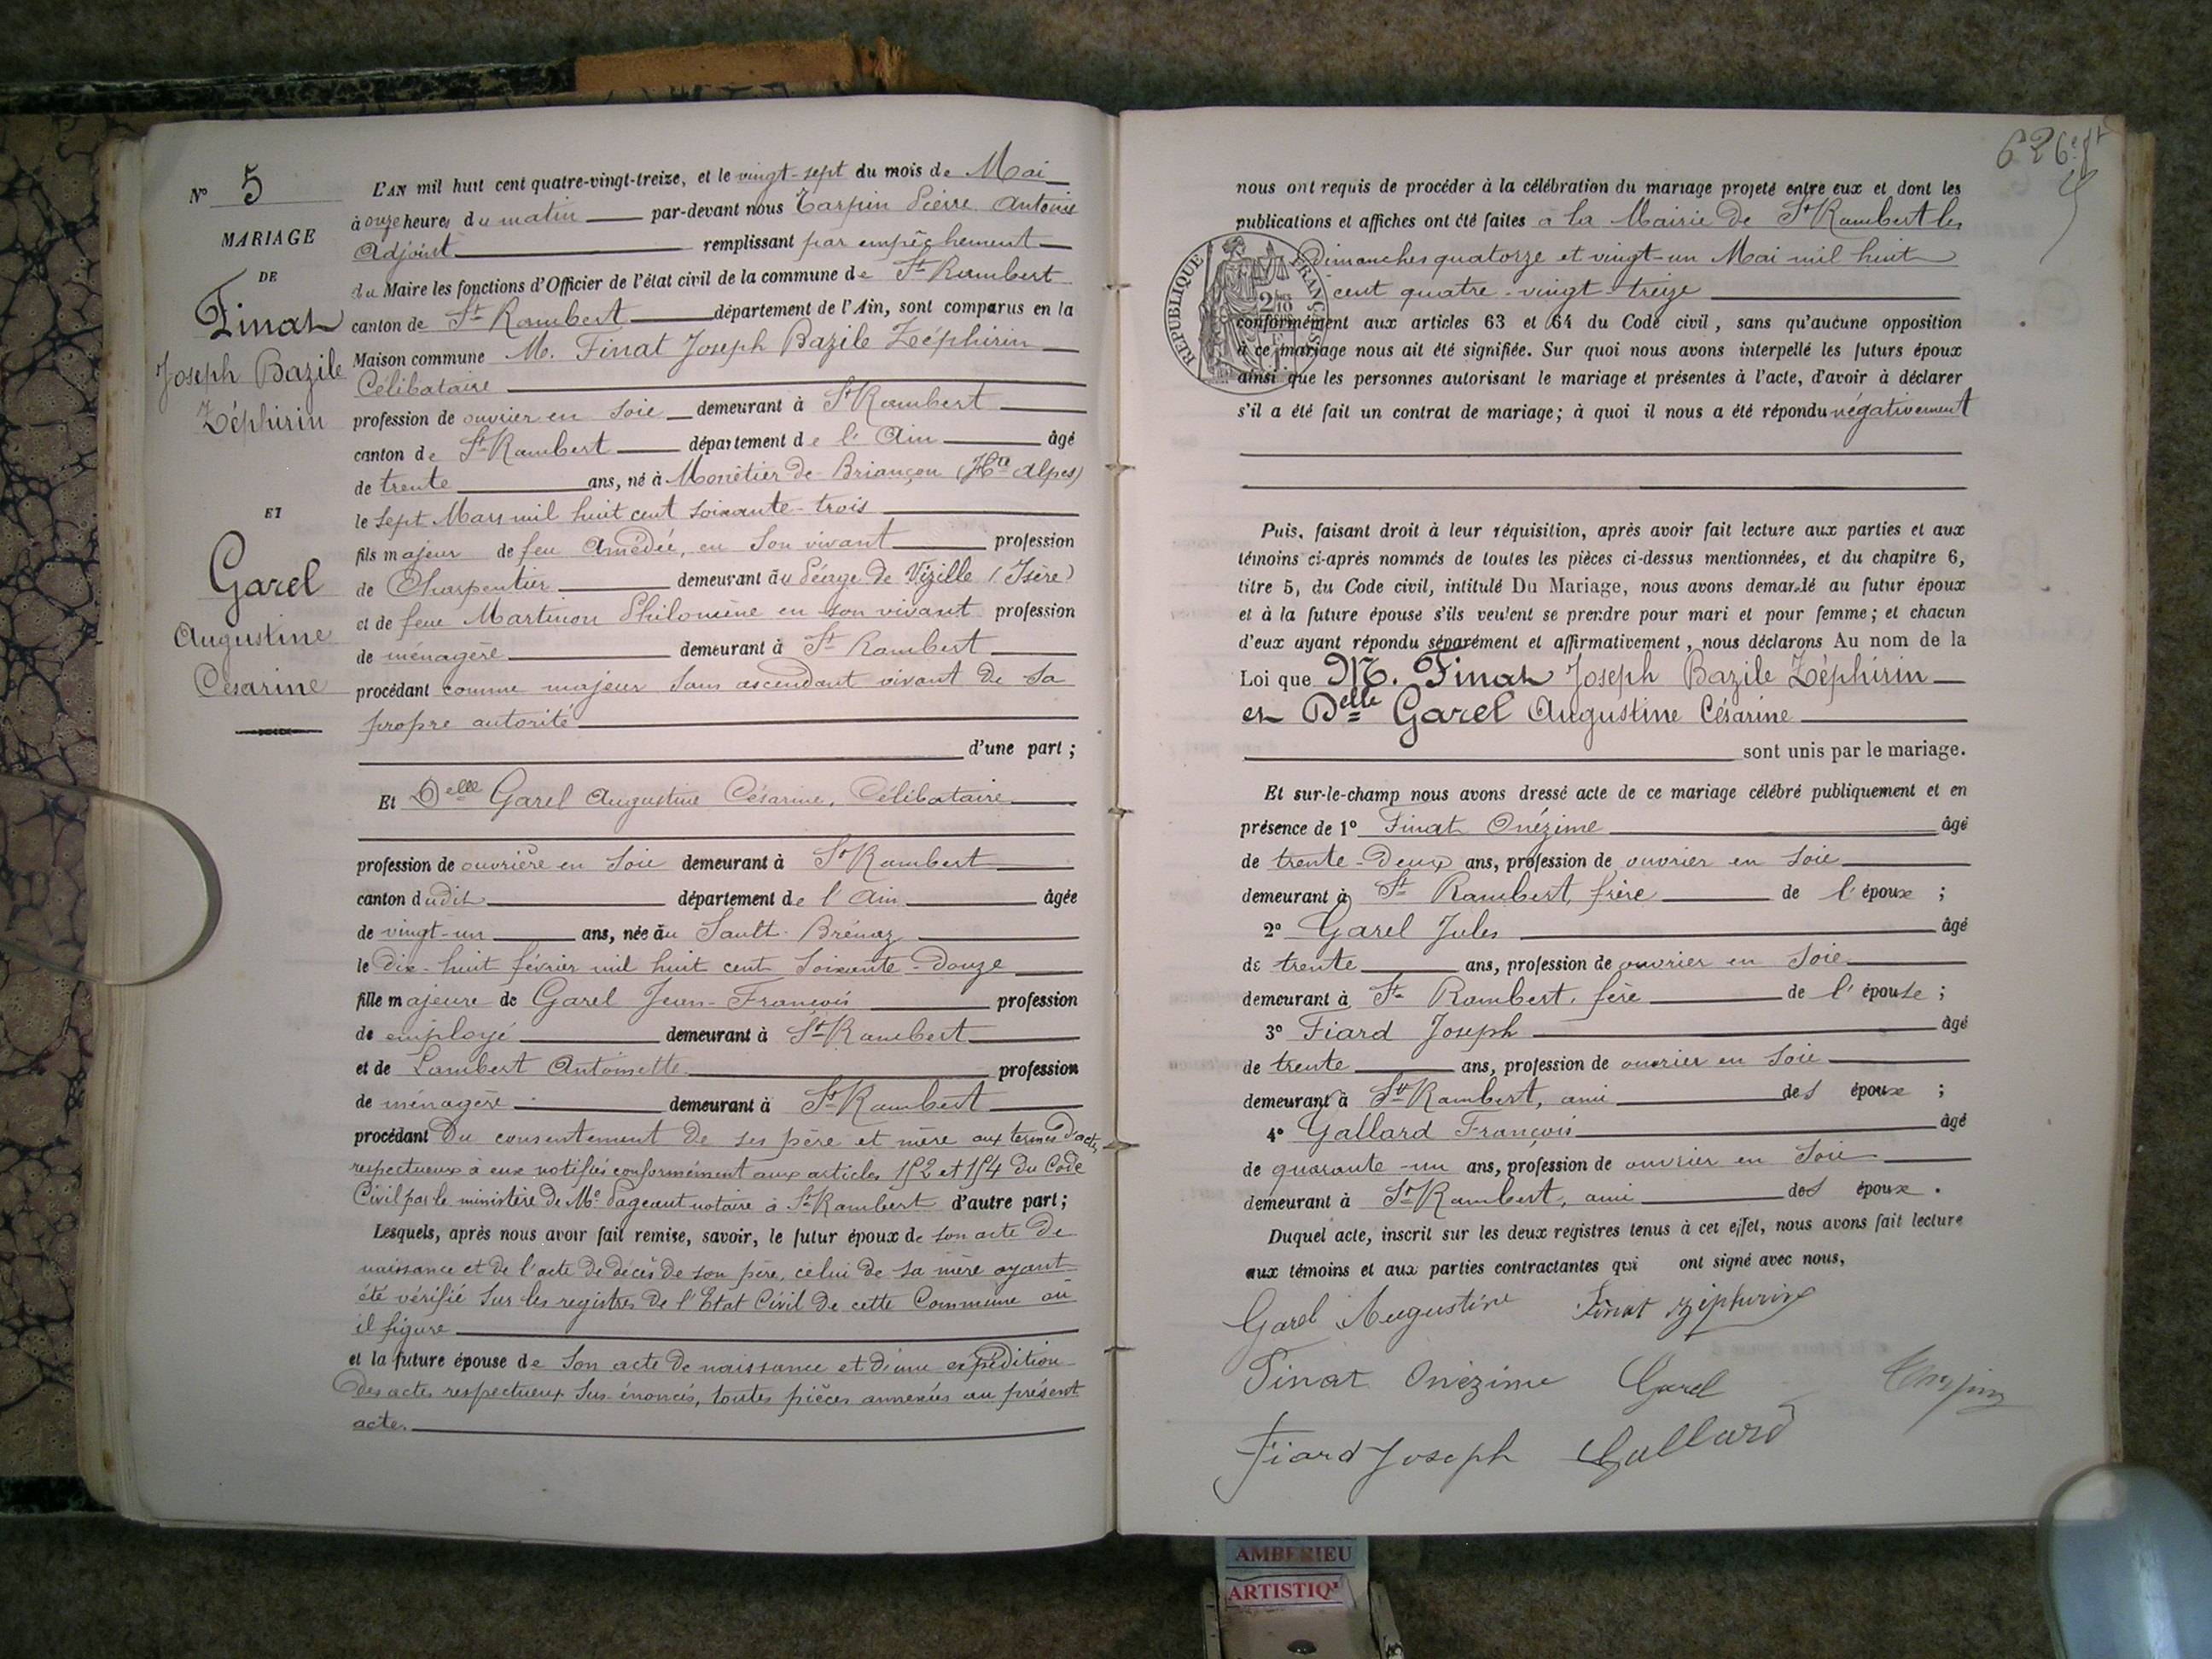 N° 5
MARIAGE
DE
Finat
Joseph Bazile
Zéphirin
ET
Garel
Augustine
Césarine
L'AN mil huit cent quatre-vingt-treize, et le vingt-sept du mois de Mai
à onze heures du matin par-devant nous Tarpin Pierre Antoine
Adjoint remplissant par empêchement
du Maire les fonctions d'Officier de l'état civil de la commune de St Rambert
canton de St Rambert département de l'Ain, sont comparus en la
Maison commune M. Finat Joseph Bazile Zéphirin
Célibataire
profession de ouvrier en soie demeurant à St Rambert
canton de St Rambert département de l'Ain âgé
de trente ans, né à Monêtier de Briançon (Htes Alpes)
le sept Mars mil huit cent soixante-trois
fils majeur de feu Amédée, en son vivant profession
de Charpentier demeurant au Péage de Vizille (Isère)
et de feue Martinon Philomène en son vivant profession
de ménagère demeurant à St Rambert
procédant comme majeur sans ascendant vivant de sa
propre autorité
d'une part ;
Et Delle Garel Augustine Césarine, Célibataire
profession de ouvrière en soie demeurant à St Rambert
canton dudit département de l'Ain âgée
de vingt-un ans, née au Sault-Brénaz
le dix-huit février mil huit cent soixante-douze
fille majeure de Garel Jean-François profession
de employé demeurant à St Rambert
et de Lambert Antoinette profession
de ménagère demeurant à St Rambert
procédant Du consentement de ses père et mère aux termes d'actes
respectueux à eux notifiés conformément aux articles 152 et 154 du Code
Civil par le ministère de Me Pageaut notaire à St Rambert d'autre part ;
Lesquels, après nous avoir fait remise, savoir, le futur époux de son acte de
naissance et de l'acte de décès de son père, celui de sa mère ayant
été vérifié sur les registres de l'Etat Civil de cette Commune où
il figure
et la future épouse de son acte de naissance et d'une expédition
des actes respectueux sus-énoncés, toutes pièces annexées au présent
acte.
nous ont requis de procéder à la célébration du mariage projeté entre eux et dont les
publications et affiches ont été faites à la Mairie de St Rambert les
Dimanches quatorze et vingt-un Mai mil huit
cent quatre-vingt-treize
RÉPUBLIQUE FRANÇAISE
conformément aux articles 63 et 64 du Code civil, sans qu'aucune opposition
à ce mariage nous ait été signifiée. Sur quoi nous avons interpellé les futurs époux
ainsi que les personnes autorisant le mariage et présentes à l'acte, d'avoir à déclarer
s'il a été fait un contrat de mariage ; à quoi il nous a été répondu négativement
Puis, faisant droit à leur réquisition, après avoir fait lecture aux parties et aux
témoins ci-après nommés de toutes les pièces ci-dessus mentionnées, et du chapitre 6,
titre 5, du Code civil, intitulé Du Mariage, nous avons demandé au futur époux
et à la future épouse s'ils veulent se prendre pour mari et pour femme ; et chacun
d'eux ayant répondu séparément et affirmativement, nous déclarons Au nom de la
Loi que M. Finat Joseph Bazile Zéphirin
et Delle Garel Augustine Césarine
sont unis par le mariage.
Et sur-le-champ nous avons dressé acte de ce mariage célébré publiquement et en
présence de 1° Finat Onézime âgé
de trente-deux ans, profession de ouvrier en soie
demeurant à St Rambert, frère de l'époux ;
2° Garel Jules âgé
de trente ans, profession de ouvrier en soie
demeurant à St Rambert, fère de l'épouse ;
3° Fiard Joseph âgé
de trente ans, profession de ouvrier en soie
demeurant à St Rambert, ami des époux ;
4° Gallard François âgé
de quarante-un ans, profession de ouvrier en soie
demeurant à St Rambert, ami des époux.
Duquel acte, inscrit sur les deux registres tenus à cet effet, nous avons fait lecture
aux témoins et aux parties contractantes qui ont signé avec nous,
Garel Augustine Finat Zéphirin
Finat Onézime Garel Tarpin
Fiard Joseph Gallard
AMBERIEU
ARTISTIQ